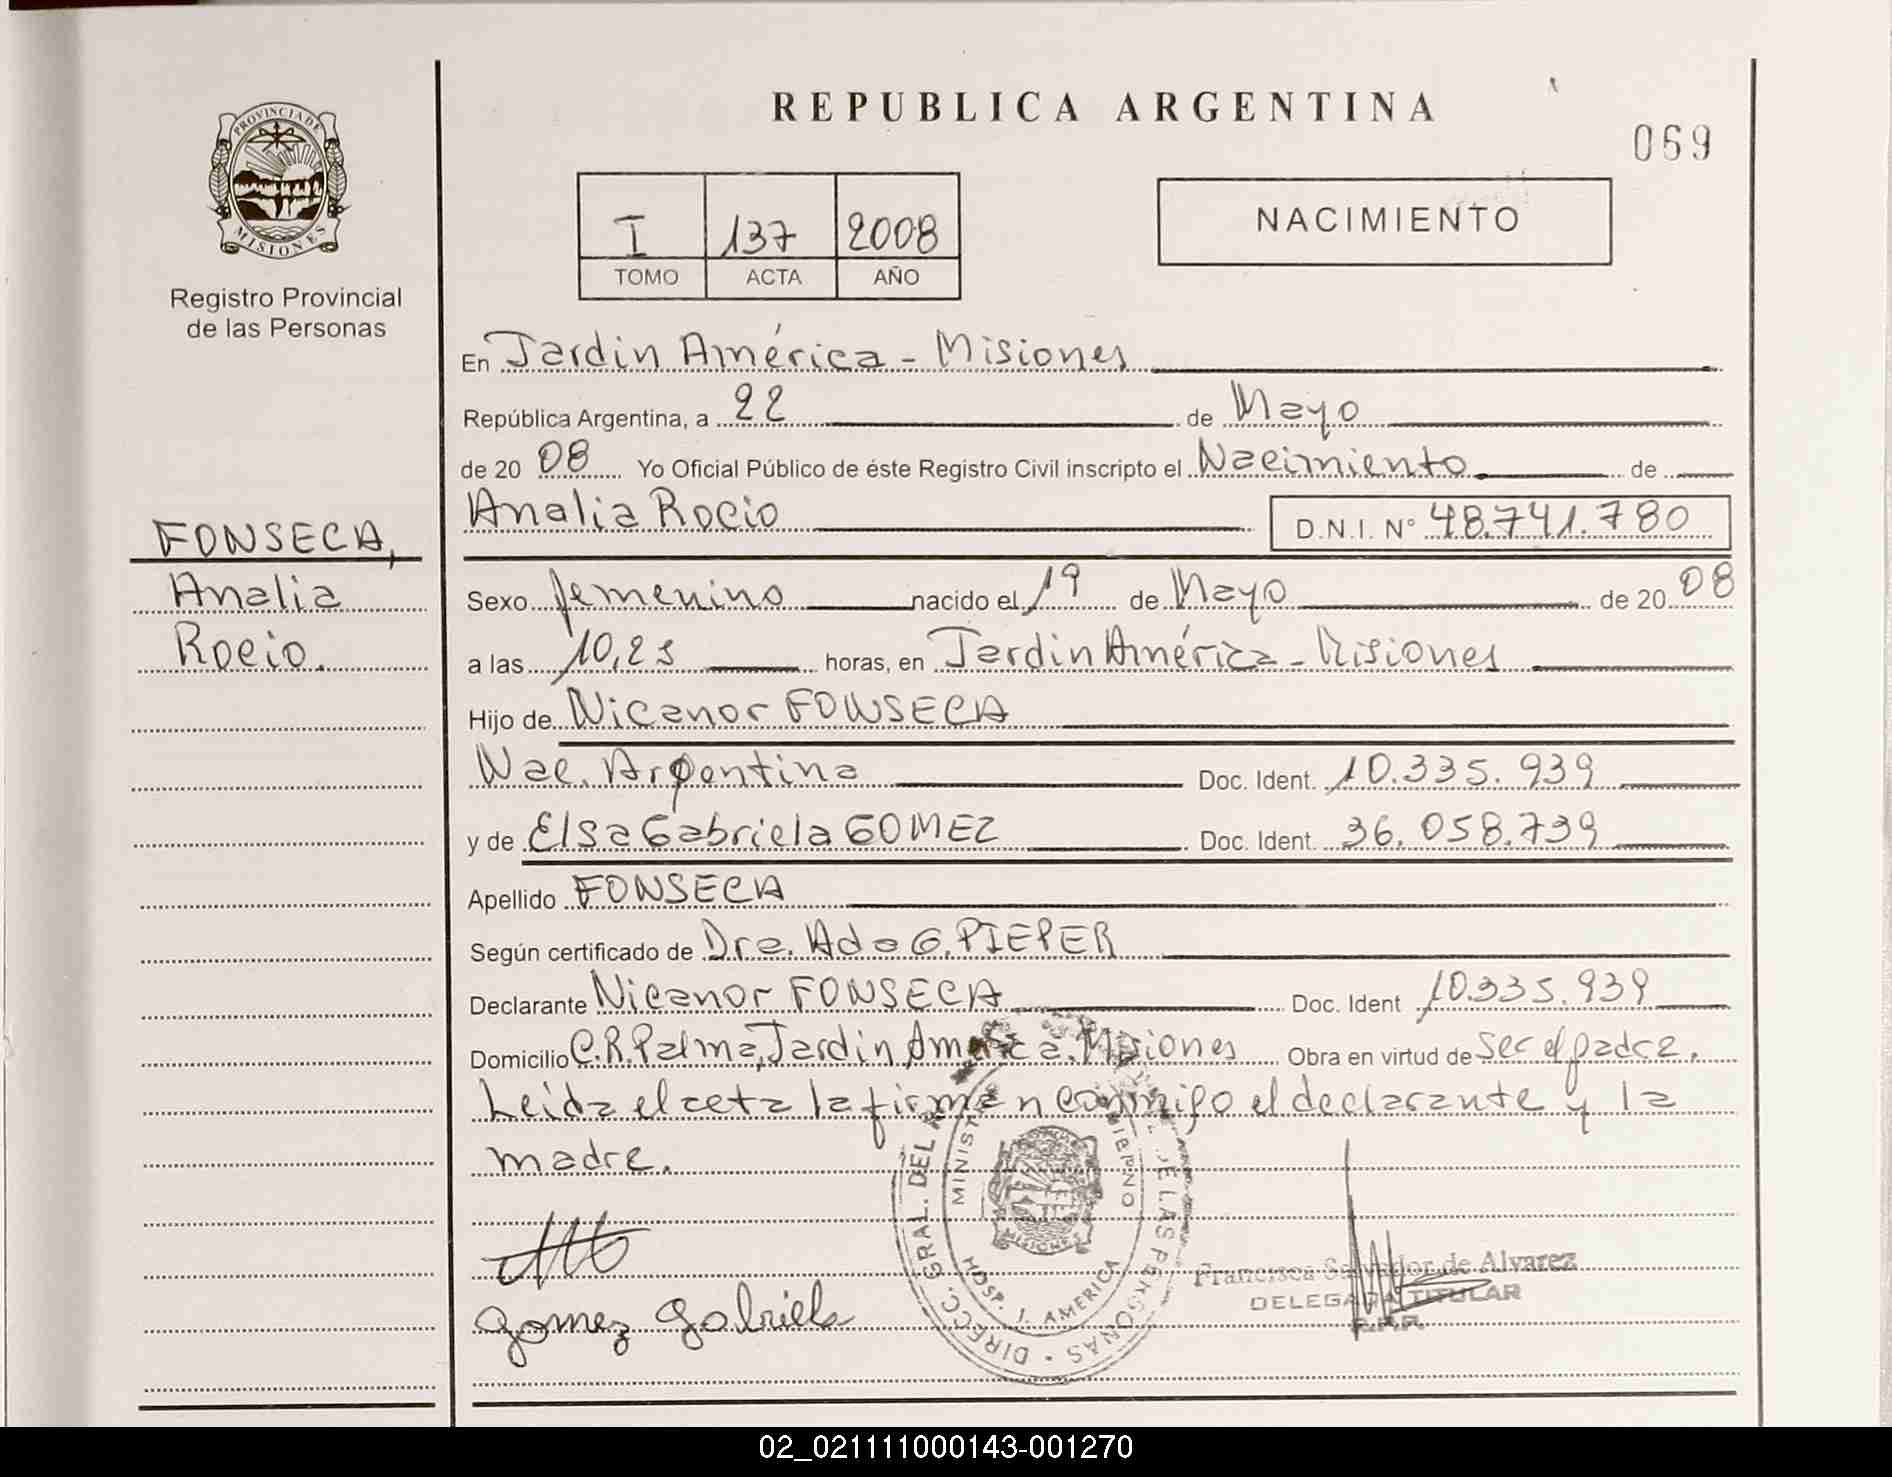 REPUBLICA ARGENTINA
069
PROVINCIA DE
MISIONES
Registro Provincial
de las Personas
I 137 2008
TOMO ACTA AÑO
NACIMIENTO
En Jardin América - Misiones
República Argentina, a 22 de Mayo
de 20 08 Yo Oficial Público de éste Registro Civil inscripto el Nacimiento de
Analia Rocio D.N.I. N° 48.741.780
FONSECA,
Analia
Rocio.
Sexo femenino nacido el 19 de Mayo de 20 08
a las 10,23 horas, en Jardin América - Misiones
Hijo de Nicanor FONSECA
Nac. Argentina Doc. Ident. 10.335.939
y de Elsa Gabriela GOMEZ Doc. Ident. 36.058.739
Apellido FONSECA
Según certificado de Dra. Ada G. PIEPER
Declarante Nicanor FONSECA Doc. Ident 10.335.939
Domicilio C.R. Palma, Jardin America. Misiones Obra en virtud de ser el padre.
Leida el acta la firman conmigo el declarante y la
madre.
DIRECC. GRAL. DEL DE LAS PERSONAS
HOSP. J. AMERICA
MISIONES
Gomez Gabriela
Francisca Salvador de Alvarez
DELEGADA TITULAR
R.P.P.
02_021111000143-001270